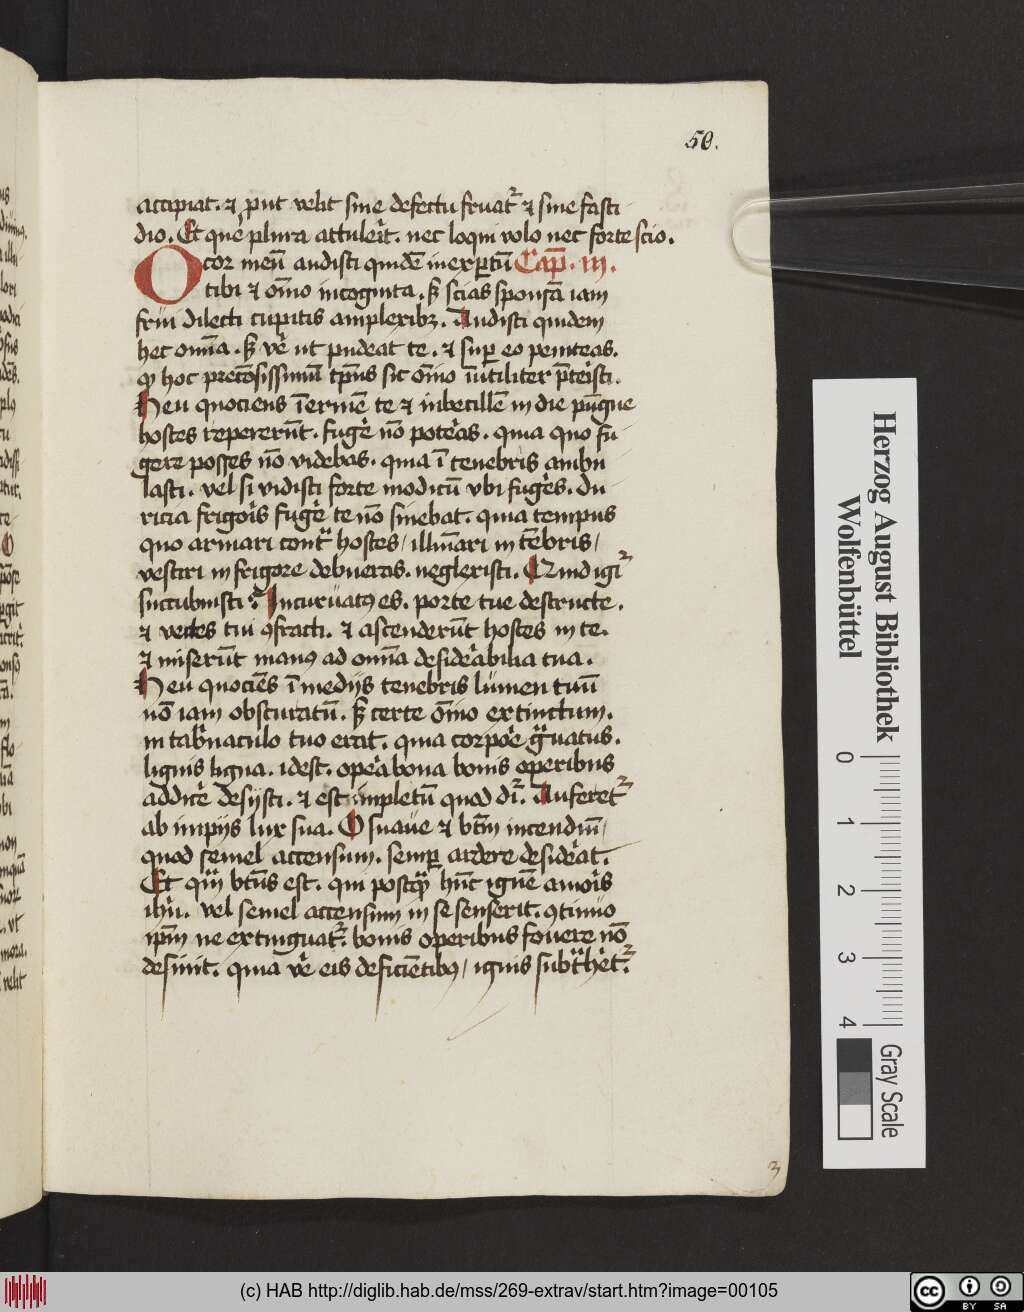 50.
accipiat. ⁊ put velit sine defectu fruat᷑ ⁊ sine fasti
dio. Et que plura attulerit. nec loqui volo nec forte scio.
O cor meū audisti quidē inexꝑtū Cap̄. iii.
tibi ⁊ om̄io incognita. sꝫ scias sponsā iam
frui dilecti cupitis amplexibꝫ. Audisti quidem
hec om̄ia. sꝫ ve᷑ ut pudeat te. ⁊ suꝑ eo peniteas.
ꝙ hoc preciosissimū tp̄us sic om̄io īutiliter p̄teristi.
Heu quociens īermē te ⁊ inbecillē in die pūgne
hostes repererūt. fuge᷑ nō poteras. quia quo fu
gere posses nō videbas. quia ī tenebris ambu
lasti. vel si vidisti forte modicū vbi fuge᷑s. du
ricia frigoris fuge᷑ te nō sinebat. quia tempus
quo armari contᷓ hostes / illūari in tēbris /
vestiri in frigore debueras. neglexisti. Quid igi᷑
succubuisti? Incuruatꝰ es. porte tue destructe.
⁊ vectes tui ꝯfracti. ⁊ ascenderūt hostes in te.
⁊ miserūt manꝰ ad om̄ia desiderabilia tua.
Heu quociēs ī medijs tenebris lumen tuū
nō iam obscuratū. sꝫ certe om̄io extinctum.
in tab᷑naculo tuo erat. quia corpoe᷑ gᷓuatus.
lignis ligna. idest. opera bona bonis operibus
addice᷑ desijsti. ⁊ est impletū quod d᷑r. Auferet᷑
ab impijs lux sua. O suaue ⁊ btm̄ incendiū /
quod semel accensum. semꝑ ardere desiderat.
Et qᷓm btūs est. qui postqᷓ hūc ignē amoris
ihu᷑. vel semel accensum in se senserit. ꝯtinuo
ip̄m ne extinguat᷑. bonis operibus fouere nō
desinit. quia ve᷑ eis deficiētibꝰ / ignis subtᷓhet᷑.
3
Herzog August Bibliothek
Wolfenbüttel
0 1 2 3 4
Gray Scale
(c) HAB http://diglib.hab.de/mss/269-extrav/start.htm?image=00105
cc BY SA